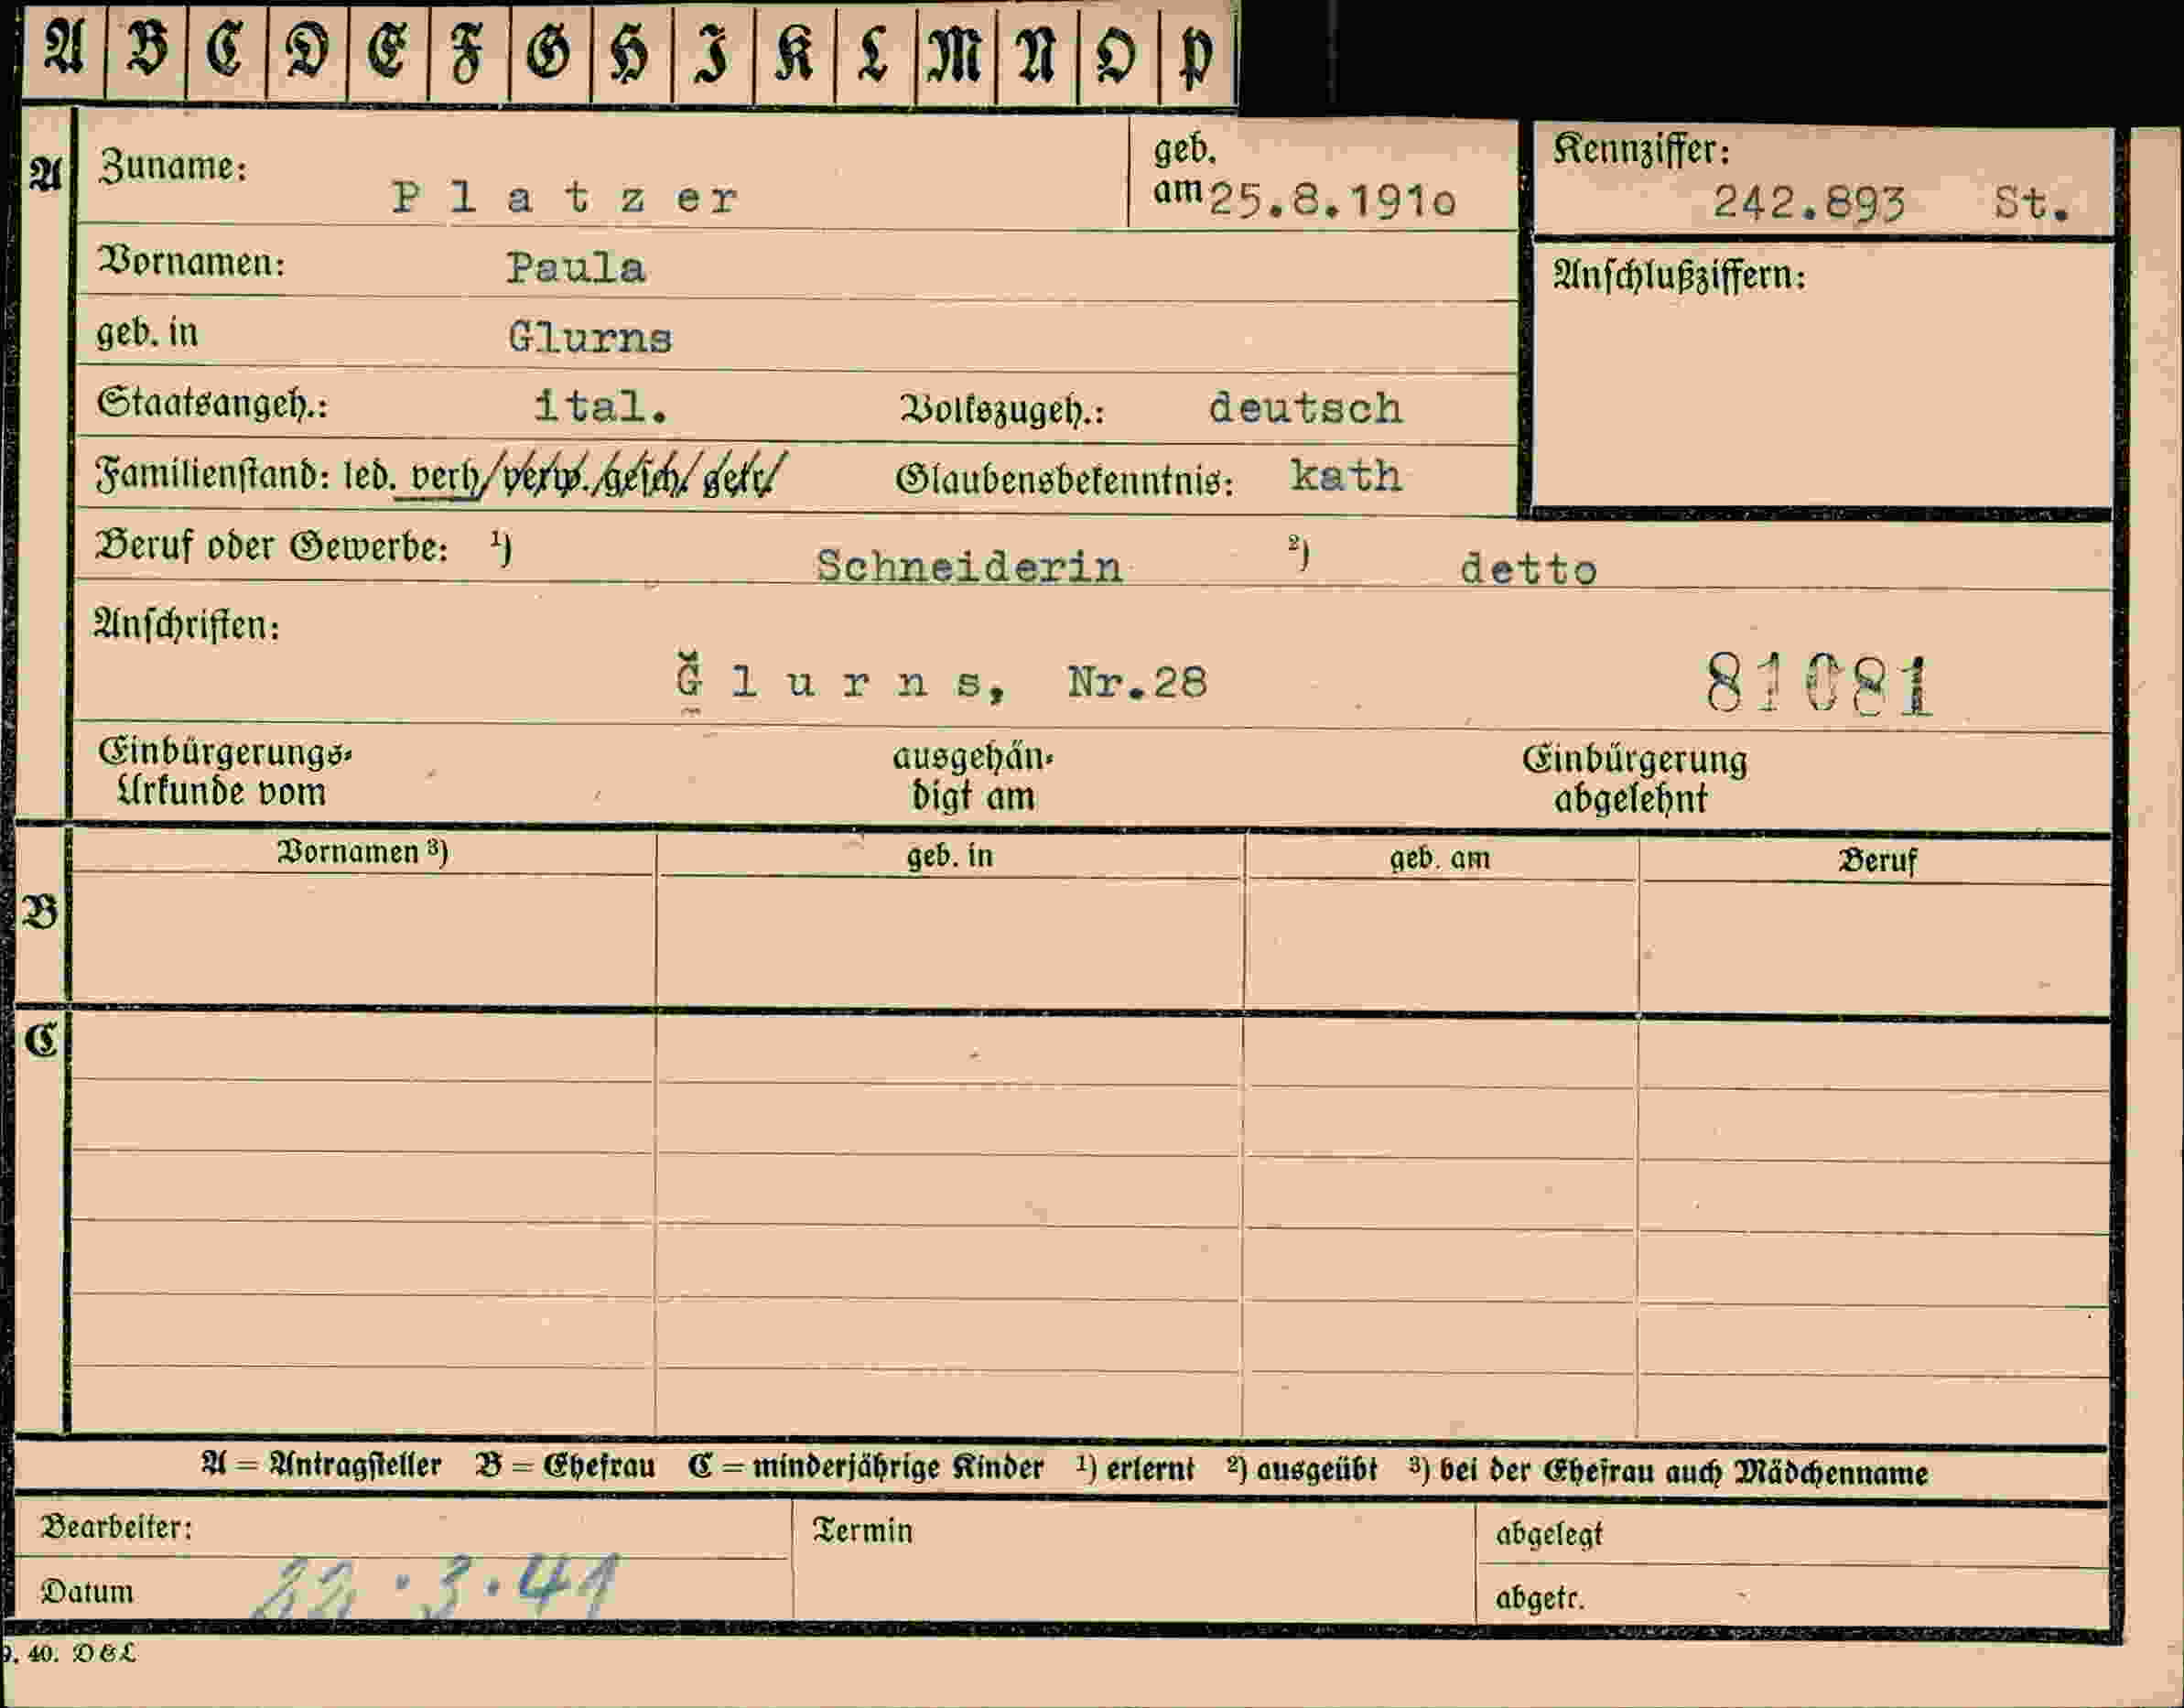 A B C D E F G H I K L M N O P
A Zuname: Platzer geb. am 25.8.1910 Kennziffer: 242.893 St.
Vornamen: Paula Anschlußziffern:
geb. in Glurns
Staatsangeh.: ital. Volkszugeh.: deutsch
Familienstand: led. verh/verw./gesch/getr/ Glaubensbekenntnis: kath
Beruf oder Gewerbe: 1) Schneiderin 2) detto
Anschriften:
Glurns, Nr.28 81081
Einbürgerungs- ausgehän- Einbürgerung
Urkunde vom digt am abgelehnt
Vornamen 3) geb. in geb. am Beruf
B
C
A = Antragsteller B = Ehefrau C = minderjährige Kinder 1) erlernt 2) ausgeübt 3) bei der Ehefrau auch Mädchenname
Bearbeiter: Termin abgelegt
Datum 22.3.41 abgetr.
9. 40. D&L